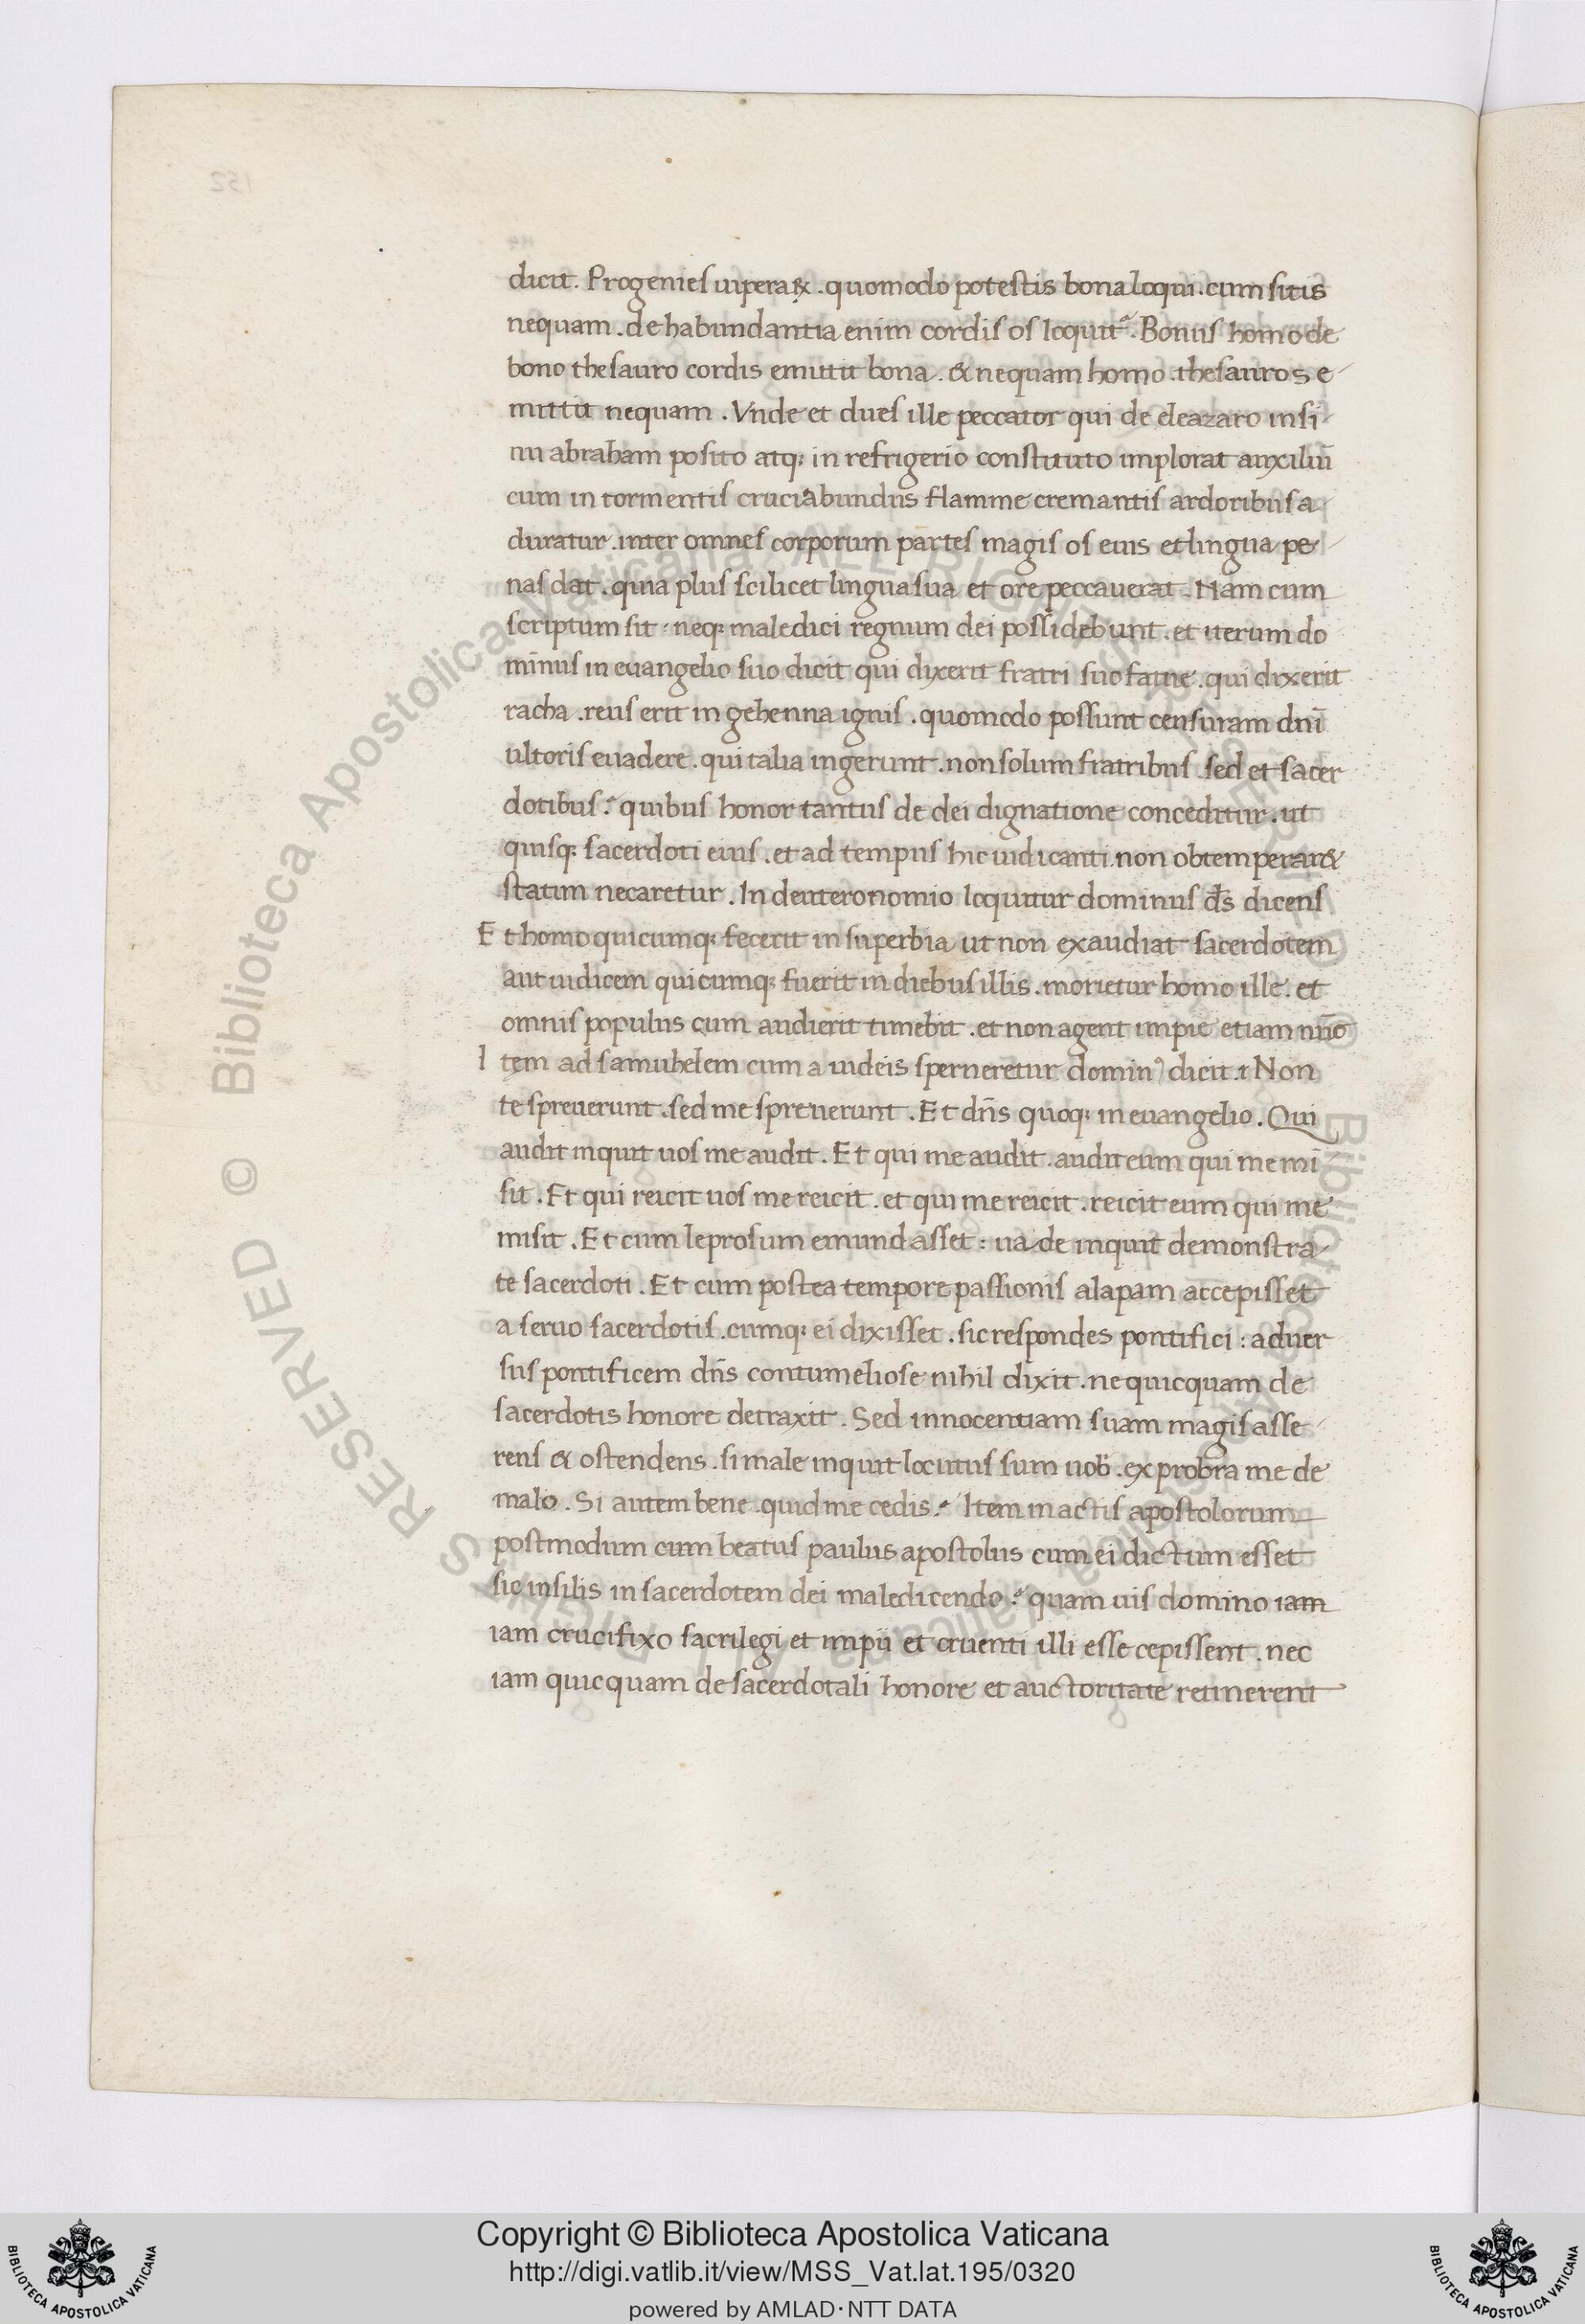 dicit. Progenies uiperaꝝ. quomodo potestis bona loqui. cum sitis
nequam. de habundantia enim cordis os loquit᷑. Bonus homo de
bono thesauro cordis emittit bona. & nequam homo. thesauros e
mittit nequam. Vnde et diues ille peccator qui de eleazaro in si
nu abraham posito atq; in refrigerio constituto implorat auxiliū
cum in tormentis cruciabundus flamme cremantis ardoribus a
duratur. inter omnes corporum partes magis os eius et lingua pe
nas dat. quia plus scilicet lingua sua et ore peccauerat. Nam cum
scriptum sit. neq; maledici regnum dei possidebunt. et iterum do
minus in euangelio suo dicit qui dixerit fratri suo fatue. qui dixerit
racha. reus erit in gehenna ignis. quomodo possunt censuram dnī
ultoris euadere. qui talia ingerunt. non solum fratribus. sed et sacer
dotibus? quibus honor tantus de dei dignatione conceditur. ut
quisq; sacerdoti eius. et ad tempus hic iudicanti. non obtemperar&
statim necaretur. In deuteronomio loquitur dominus ds̄ dicens
Et homo quicumq; fecerit in superbia ut non exaudiat sacerdotem
aut iudicem quicumq; fuerit in diebus illis. morietur homo ille. et
omnis populus cum audierit timebit. et non agent impie etiam nūo
Item ad samuhelem cum a iudeis sperneretur domin᷒ dicit. Non
te spreuerunt. sed me spreuerunt. Et dn̄s quoq; in euangelio. Qui
audit inquit uos me audit. Et qui me audit. audit eum qui me mi
sit. Et qui reicit uos me reicit. et qui me reicit. reicit eum qui me
misit. Et cum leprosum emundasset: uade inquit demonstra
te sacerdoti. Et cum postea tempore passionis alapam accepisset
a seruo sacerdotis. cumq; ei dixisset. sic respondes pontifici: aduer
sus pontificem dn̄s contumeliose nihil dixit. ne quicquam de
sacerdotis honore detraxit. Sed innocentiam suam magis asse
rens & ostendens. si male inquit locutus sum uob̄. exprobra me de
malo. Si autem bene. quid me cedis? Item in actis apostolorum
postmodum cum beatus paulus apostolus cum ei dictum esset
sic insilis in sacerdotem dei maledicendo? quam uis domino iam
iam crucifixo sacrilegi et impii et cruenti illi esse cepissent. nec
iam quicquam de sacerdotali honore et auctoritate retinerent
Copyright © Biblioteca Apostolica Vaticana
http://digi.vatlib.it/view/MSS_Vat.lat.195/0320
powered by AMLAD·NTT DATA